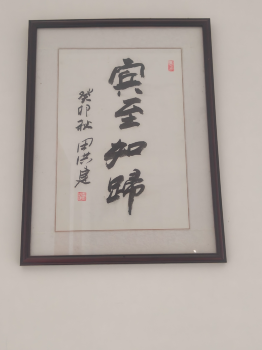 宾至如歸
癸卯秋 田洪建